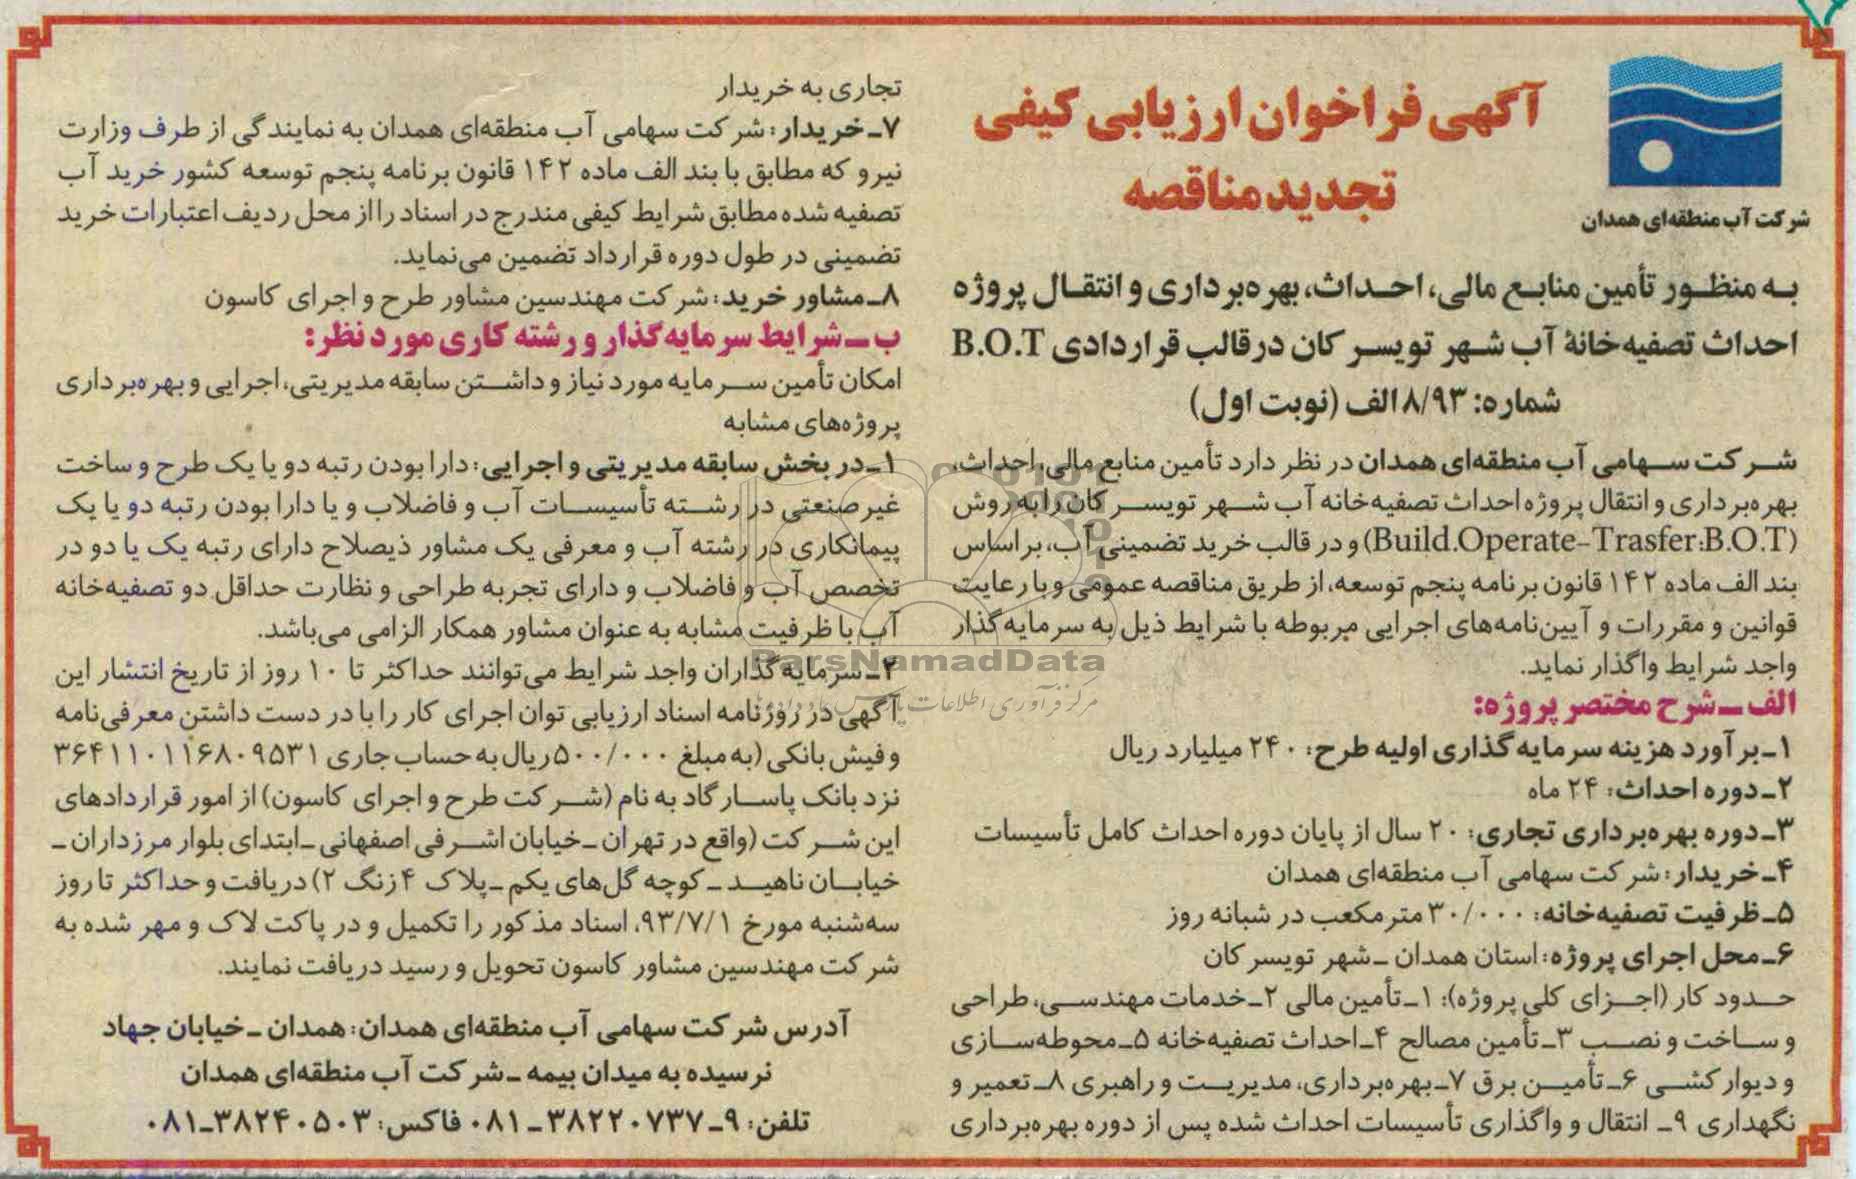 شرکت آب منطقه‌ای همدان
آگهی فراخوان ارزیابی کیفی
تجدید مناقصه
به منظور تأمین منابع مالی، احداث، بهره‌برداری و انتقال پروژه
احداث تصفیه‌خانهٔ آب شهر تویسرکان درقالب قراردادی B.O.T
شماره: ۸/۹۳/الف (نوبت اول)
شرکت سهامی آب منطقه‌ای همدان در نظر دارد تأمین منابع مالی، احداث،
بهره‌برداری و انتقال پروژه احداث تصفیه‌خانه آب شهر تویسرکان را به روش
(Build.Operate-Trasfer:B.O.T) و در قالب خرید تضمینی آب، بر اساس
بند الف ماده ۱۴۲ قانون برنامه پنجم توسعه، از طریق مناقصه عمومی و با رعایت
قوانین و مقررات و آیین‌نامه‌های اجرایی مربوطه با شرایط ذیل به سرمایه‌گذار
واجد شرایط واگذار نماید.
الف ـ شرح مختصر پروژه:
۱ـ برآورد هزینه سرمایه‌گذاری اولیه طرح: ۲۴۰ میلیارد ریال
۲ـ دوره احداث: ۲۴ ماه
۳ـ دوره بهره‌برداری تجاری: ۲۰ سال از پایان دوره احداث کامل تأسیسات
۴ـ خریدار: شرکت سهامی آب منطقه‌ای همدان
۵ـ ظرفیت تصفیه‌خانه: ۳۰/۰۰۰ مترمکعب در شبانه روز
۶ـ محل اجرای پروژه: استان همدان ـ شهر تویسرکان
حدود کار (اجزای کلی پروژه): ۱ـ تأمین مالی ۲ـ خدمات مهندسی، طراحی
و ساخت و نصب ۳ـ تأمین مصالح ۴ـ احداث تصفیه‌خانه ۵ـ محوطه‌سازی
و دیوارکشی ۶ـ تأمین برق ۷ـ بهره‌برداری، مدیریت و راهبری ۸ـ تعمیر و
نگهداری ۹ـ انتقال و واگذاری تأسیسات احداث شده پس از دوره بهره‌برداری
تجاری به خریدار
۷ـ خریدار: شرکت سهامی آب منطقه‌ای همدان به نمایندگی از طرف وزارت
نیرو که مطابق با بند الف ماده ۱۴۲ قانون برنامه پنجم توسعه کشور خرید آب
تصفیه شده مطابق شرایط کیفی مندرج در اسناد را از محل ردیف اعتبارات خرید
تضمینی در طول دوره قرارداد تضمین می‌نماید.
۸ـ مشاور خرید: شرکت مهندسین مشاور طرح و اجرای کاسون
ب ـ شرایط سرمایه‌گذار و رشته کاری مورد نظر:
امکان تأمین سرمایه مورد نیاز و داشتن سابقه مدیریتی، اجرایی و بهره‌برداری
پروژه‌های مشابه
۱ـ در بخش سابقه مدیریتی و اجرایی: دارا بودن رتبه دو یا یک طرح و ساخت
غیرصنعتی در رشته تأسیسات آب و فاضلاب و یا دارا بودن رتبه دو یا یک
پیمانکاری در رشته آب و معرفی یک مشاور ذیصلاح دارای رتبه یک یا دو در
تخصص آب و فاضلاب و دارای تجربه طراحی و نظارت حداقل دو تصفیه‌خانه
آب با ظرفیت مشابه به عنوان مشاور همکار الزامی می‌باشد.
۲ـ سرمایه‌گذاران واجد شرایط می‌توانند حداکثر تا ۱۰ روز از تاریخ انتشار این
آگهی در روزنامه اسناد ارزیابی توان اجرای کار را با در دست داشتن معرفی‌نامه
و فیش بانکی (به مبلغ ۵۰۰/۰۰۰ ریال به حساب جاری ۳۶۴۱۱۰۱۱۶۸۰۹۵۳۱
نزد بانک پاسارگاد به نام (شرکت طرح و اجرای کاسون) از امور قراردادهای
این شرکت (واقع در تهران ـ خیابان اشرفی اصفهانی ـ ابتدای بلوار مرزداران ـ
خیابان ناهید ـ کوچه گل‌های یکم ـ پلاک ۴ زنگ ۲) دریافت و حداکثر تا روز
سه‌شنبه مورخ ۹۳/۷/۱، اسناد مذکور را تکمیل و در پاکت لاک و مهر شده به
شرکت مهندسین مشاور کاسون تحویل و رسید دریافت نمایند.
آدرس شرکت سهامی آب منطقه‌ای همدان: همدان ـ خیابان جهاد
نرسیده به میدان بیمه ـ شرکت آب منطقه‌ای همدان
تلفن: ۹ـ ۳۸۲۲۰۷۳۷ ـ ۰۸۱ فاکس: ۳۸۲۴۰۵۰۳ـ۰۸۱
ParsNamadData